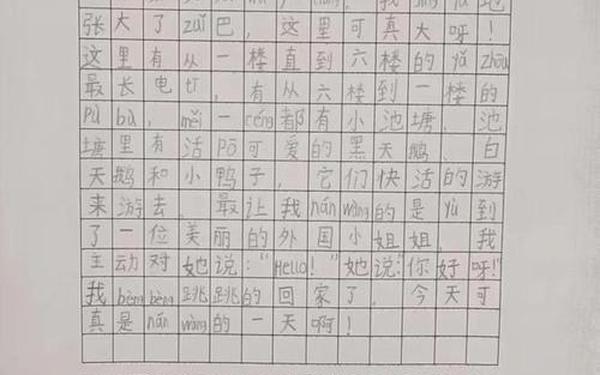 地
张大了zuǐ巴，这里可真大呀！
这里有从一楼直到六楼的yǎ zhōu
最长电tī，有从六楼到一楼的
pù bù，měi一céng都有小池塘，池
塘里有活pō可爱的黑天鹅、白
天鹅和小鸭子，它们快活的游
来游去，最让我nán wàng的是yù到
了一位美丽的外国小姐姐，我
主动对她说："Hello！"她说："你好呀！"
我bèng bèng跳跳的回家了，今天可
真是nán wàng的一天啊！